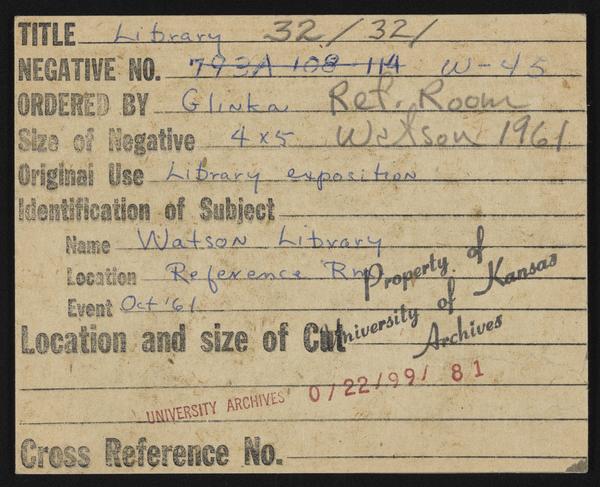 TITLE Library 32/32/
NEGATIVE NO. 793A 108-114 W-45
ORDERED BY Glinka Ref. Room
Size of Negative 4x5 Watson 1961
Original Use Library exposition
Identification of Subject
Name Watson Library
Location Reference Rm
Event Oct '61
Property of
University of Kansas
Archives
Location and size of Cut
UNIVERSITY ARCHIVES 0/22/99/ 81
Cross Reference No.